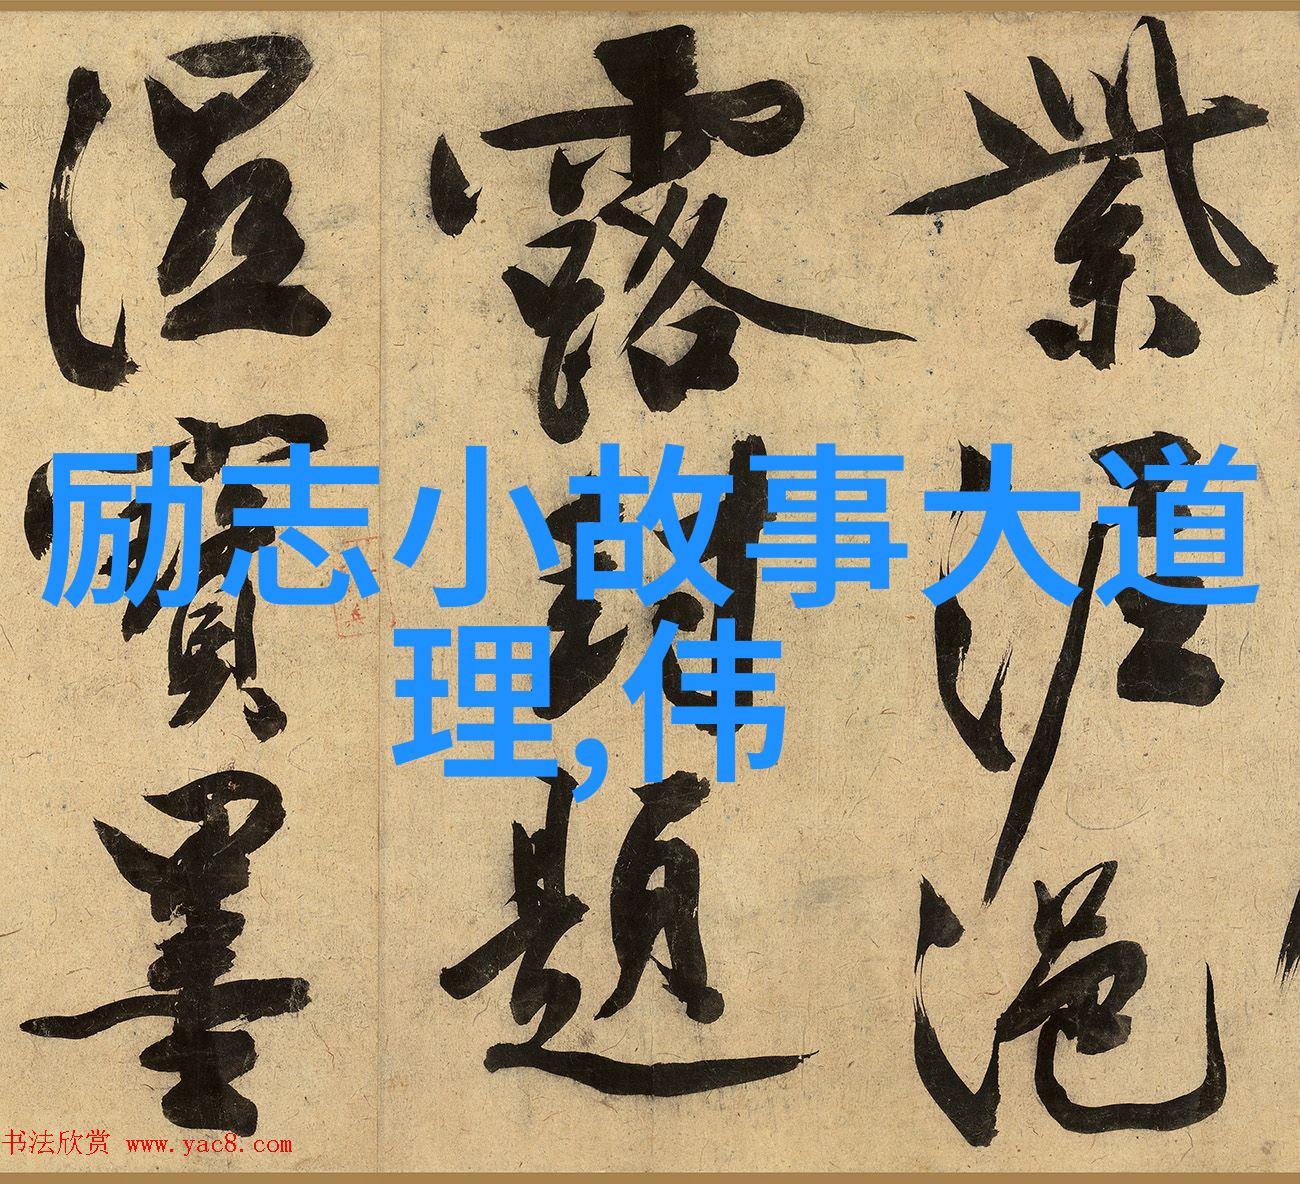 紫泥浥
露封題
濕寶墨
励志小故事大道
理,伟
书法欣赏 www.yac8.com